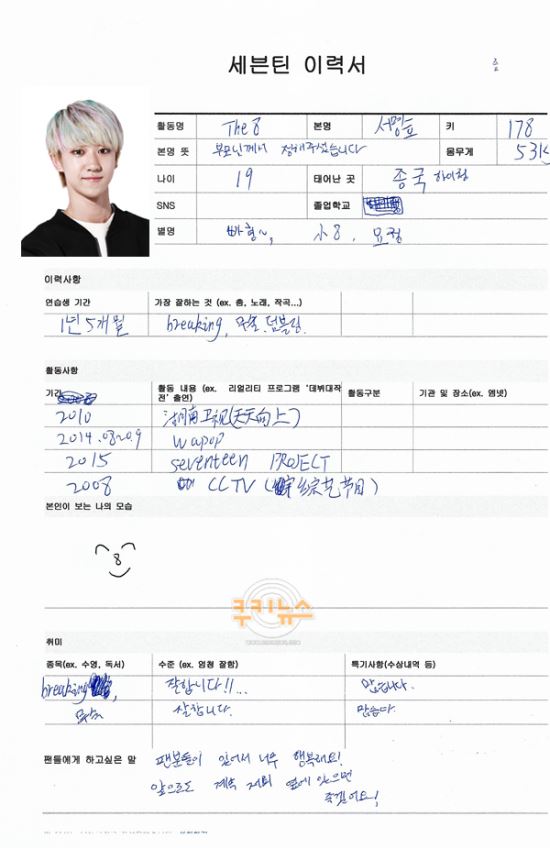 세븐틴 이력서
활동명 The 8 본명 서명호 키 178
본명 뜻 부모님께서 정해주셨습니다 몸무게
나이 19 태어난 곳 중국 하이청
SNS 졸업학교
별명 빠형~, 小8, 요정
이력사항
연습생 기간 가장 잘하는 것 (ex. 춤, 노래, 작곡...)
1년 5개월 breaking, 무술, 덤블링
활동사항
기간 활동 내용 (ex. 리얼리티 프로그램 '데뷔대작전' 출연) 활동구분 기관 및 장소(ex. 엠넷)
2010 湖南卫视(天天向上)
2014.08~09 wapop
2015 seventeen PROJECT
2008 CCTV (综艺节目)
본인이 보는 나의 모습
8
쿠키뉴스
취미
종목(ex. 수영, 독서) 수준 (ex. 엄청 잘함) 특기사항(수상내역 등)
breaking, 잘합니다!!... 많습니다.
무술 잘합니다. 많습니다.
팬들에게 하고싶은 말 팬분들이 있어서 너무 행복해요!
앞으로도 계속 저희 옆에 있으면
좋겠어요!